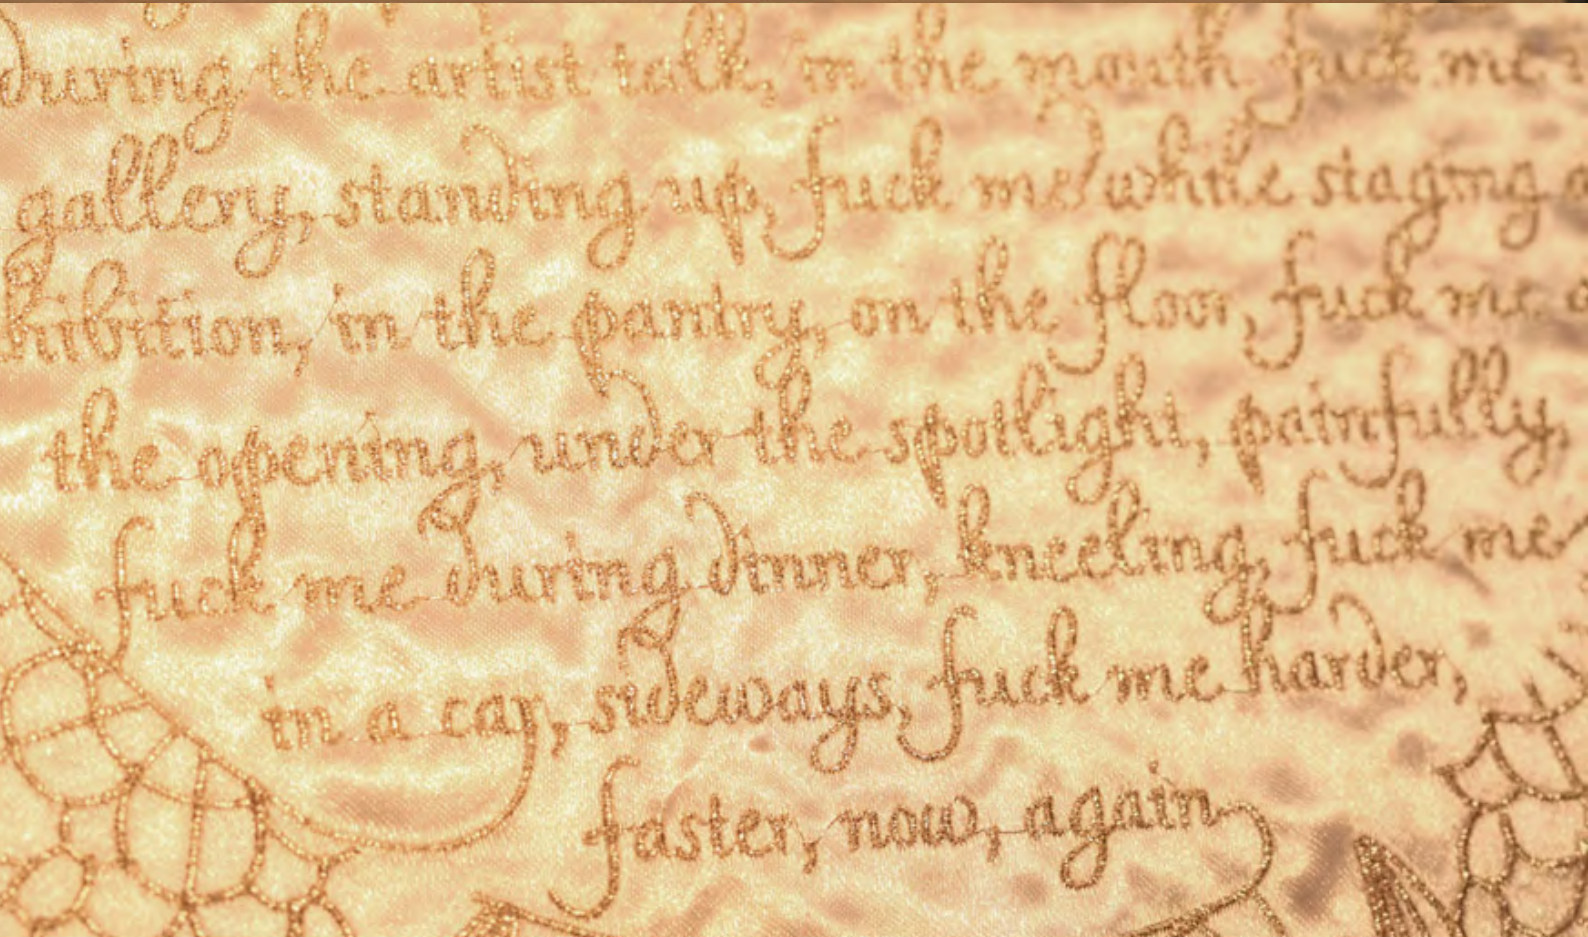 during the artist talk, in the mouth fuck me
gallery, standing up, fuck me while staging
hibition, in the pantry, on the floor, fuck me
the opening, under the spotlight, painfully,
fuck me during dinner, kneeling, fuck me
in a car, sideways, fuck me harder,
faster, now, again